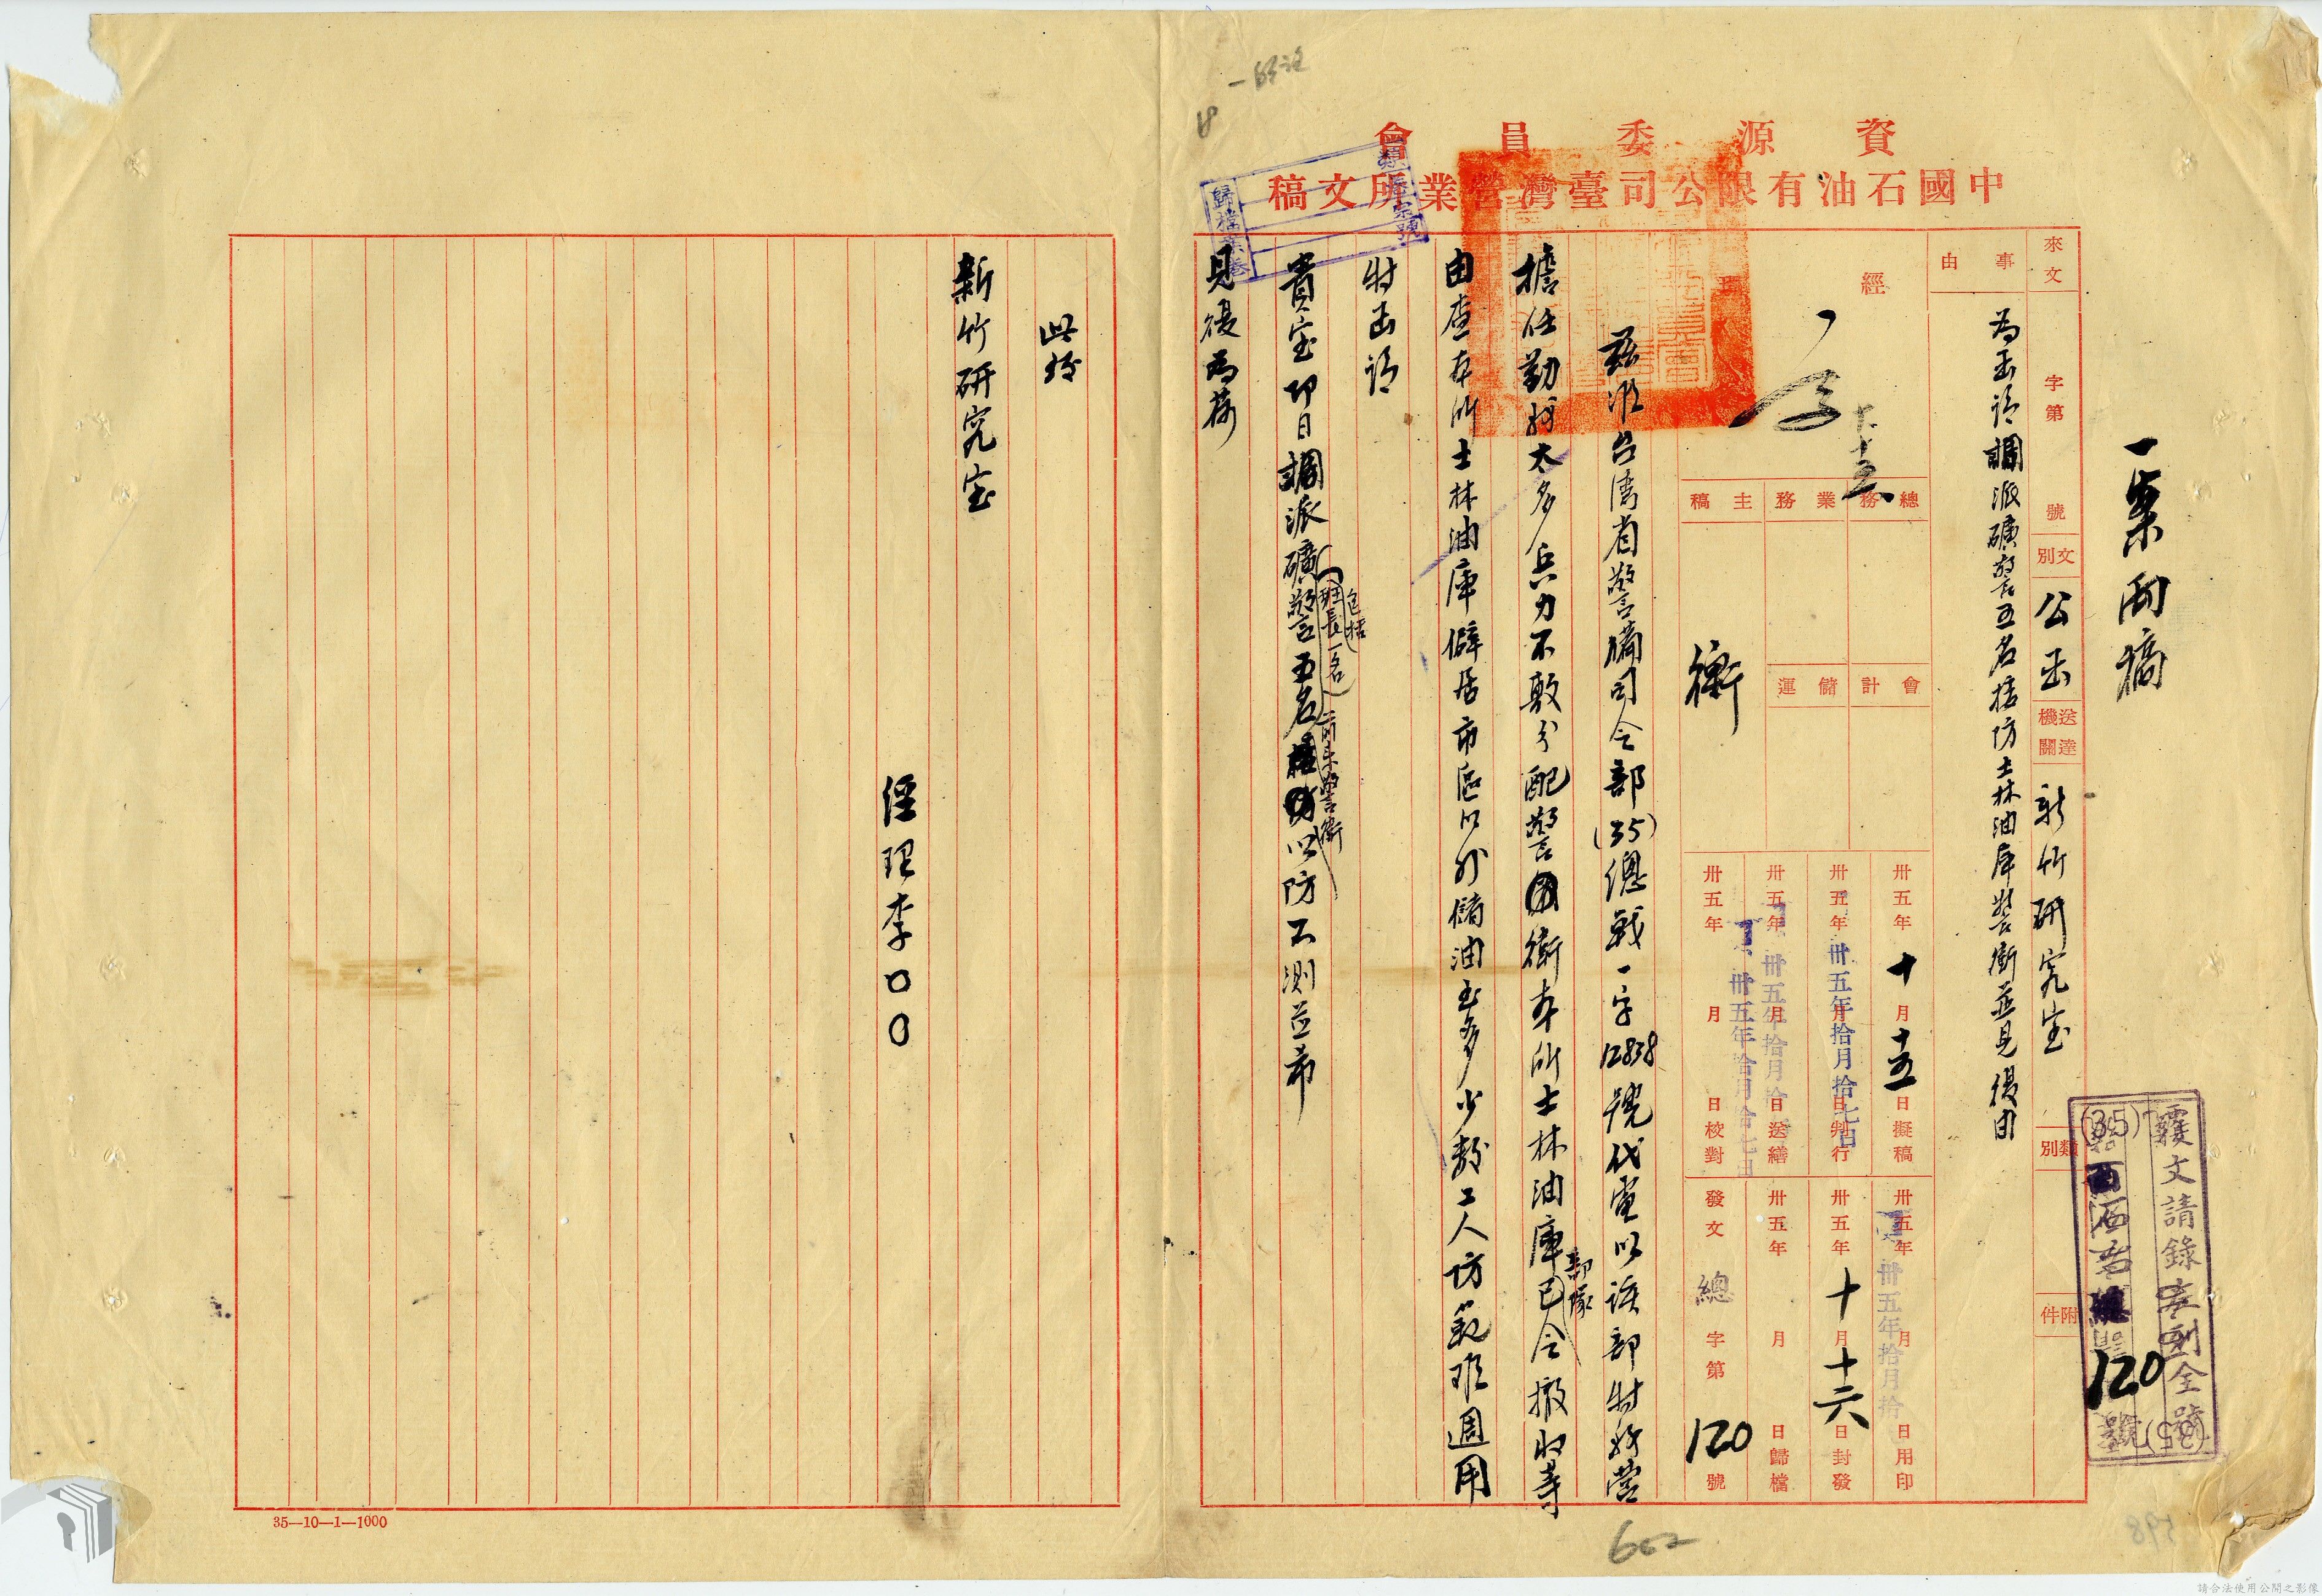 資源委員會
中國石油有限公司臺灣營業所文稿
一案兩稿
來文 字第 號
文別 公函
送達機關 新竹研究室
類別
附件
事由
為函請調派礦警五名擔防士林油庫警衛並見復由
經理
總務 業務 主稿
會計 儲運
衛
卅五年十月十五日擬稿
卅五年 月 日判行
卅五年拾月拾七日
卅五年 月 日送繕
卅五年拾月拾
卅五年 月 日校對
卅五年拾月拾七日
卅五年 月 日用印
卅五年拾月拾
卅五年十月十六日封發
卅五年 月 日歸檔
發文 總字第120號
覆文請錄本列全號
(35)
120
號
茲准台灣省警備司令部(35)總戰一字12838號代電以該部特務營
擔任勤務太多兵力不敷分配警衛本所士林油庫部隊已令撤收等
由查本所士林油庫僻居市區以外儲油至多少數工人防範難週用
特函請
貴室即日調派礦警五名(包括班長一名)前來警衛以防不測並希
見復為荷
此致
新竹研究室
經理李〇〇
類 宗號
歸檔
35—10—1—1000
請合法使用公開之影像